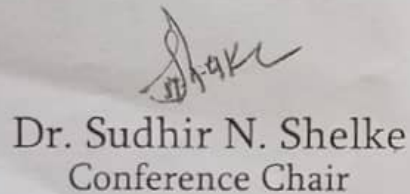 Dr. Sudhir N. Shelke
Conference Chair